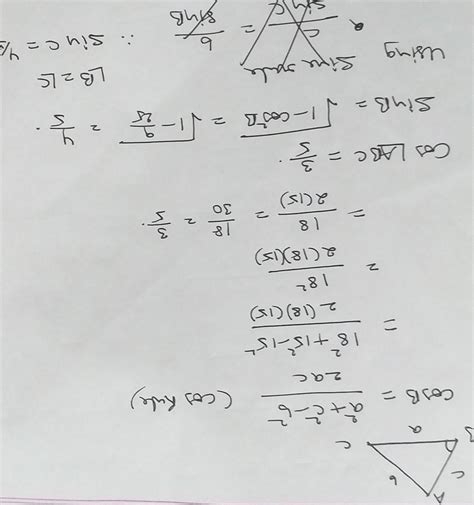 A
c b
B a C
cosB = a²+c²-b² / 2ac (cos Rule)
= 18²+15²-15² / 2(18)(15)
= 18² / 2(18)(15)
= 18 / 2(15) = 18/30 = 3/5.
Cos∠ABC = 3/5.
SinB = √1-cos²B = √1-9/25 = 4/5.
Using Sine rule ∠B = ∠C
c / sinC = b / sinB ∴ sinC = 4/5